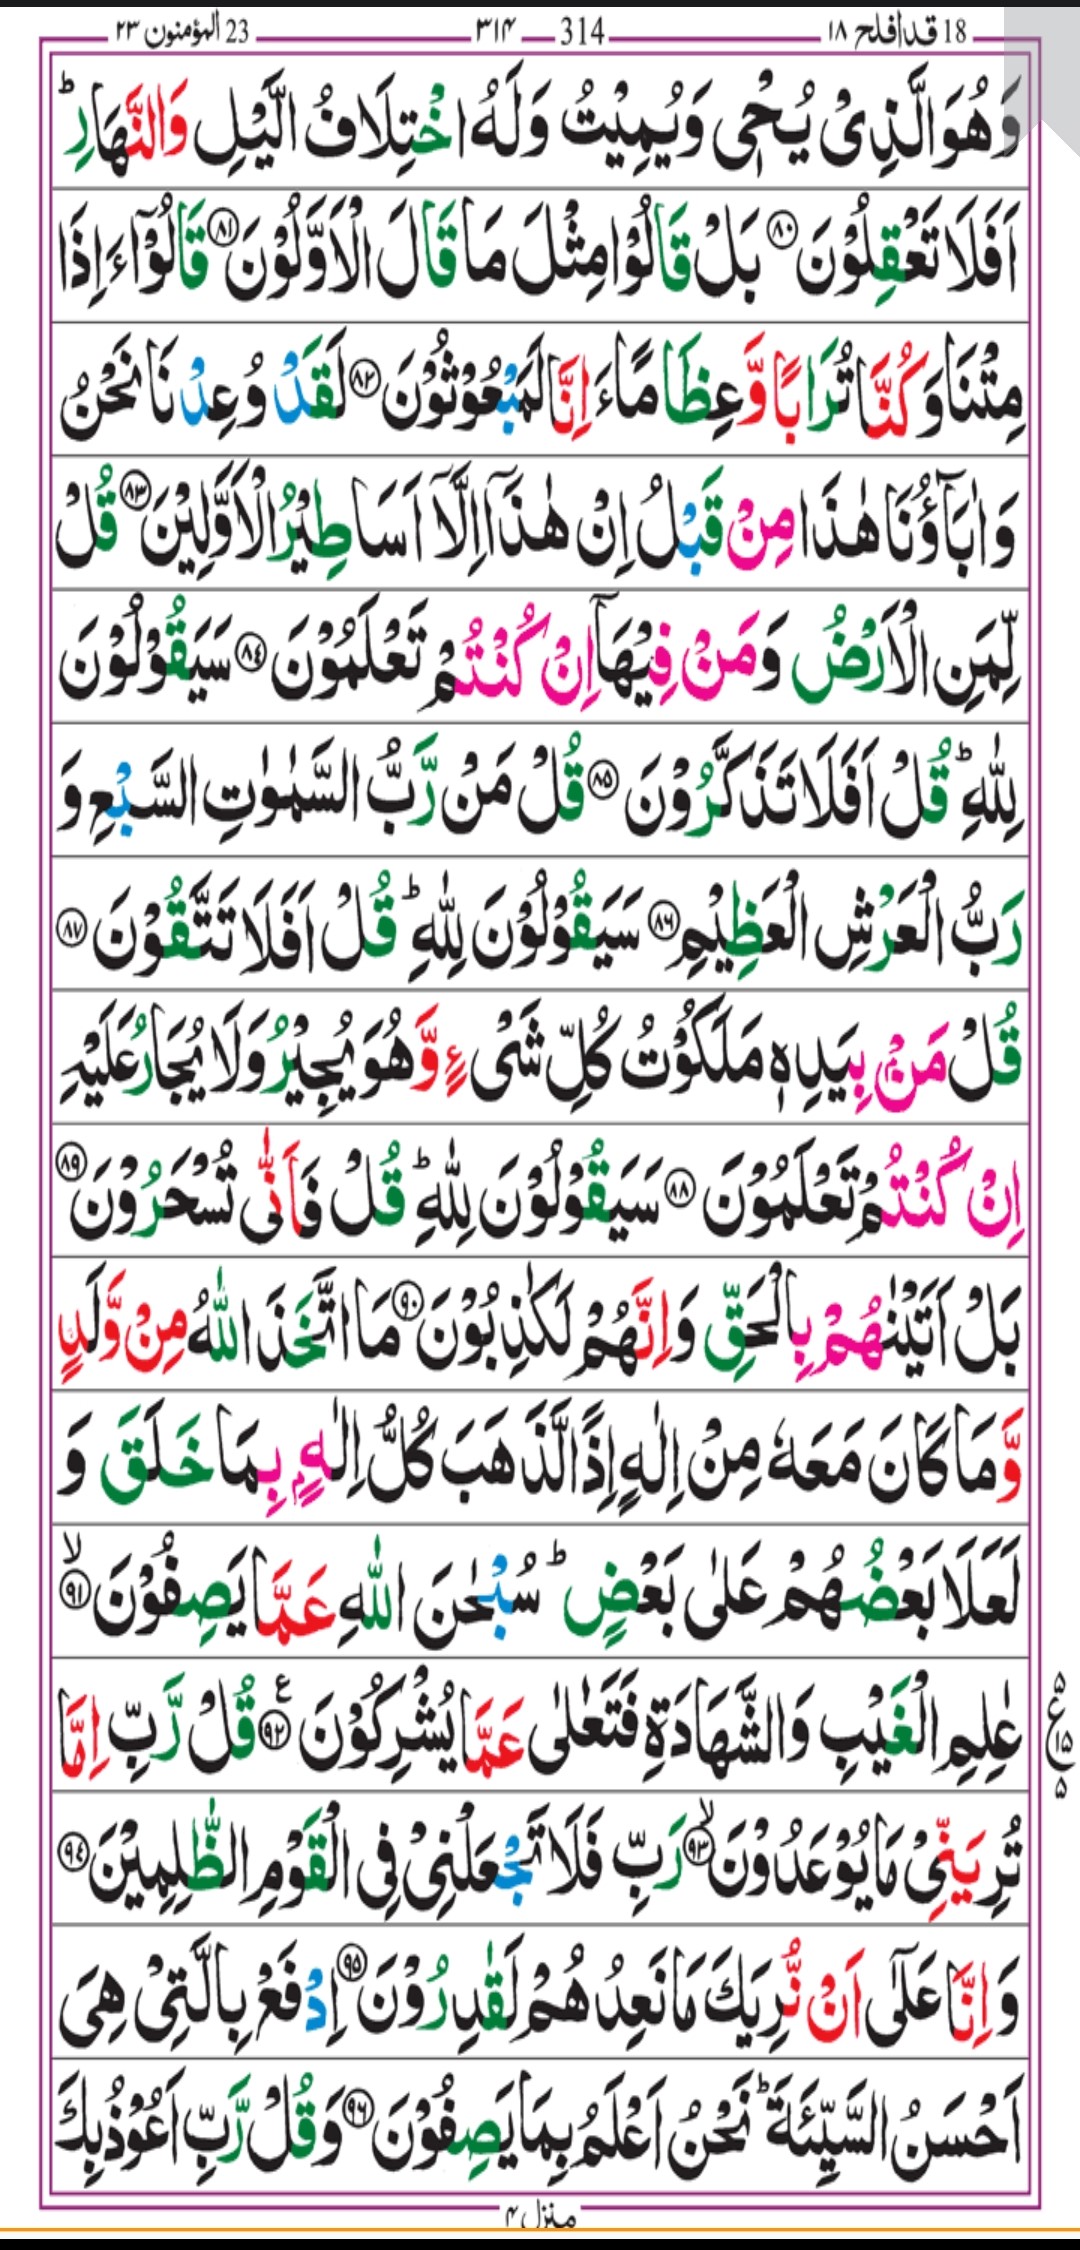 18 قد أفلح ١٨ 314 ٣١۴ 23 المؤمنون ٢٣
وَهُوَ الَّذِیْ یُحْیٖ وَیُمِیْتُ وَلَهُ اخْتِلَافُ الَّیْلِ وَالنَّهَارِ ؕ
اَفَلَا تَعْقِلُوْنَ ٨٠ بَلْ قَالُوْا مِثْلَ مَا قَالَ الْاَوَّلُوْنَ ٨١ قَالُوْۤا ءَاِذَا
مِتْنَا وَكُنَّا تُرَابًا وَّعِظَامًا ءَاِنَّا لَمَبْعُوْثُوْنَ ٨٢ لَقَدْ وُعِدْنَا نَحْنُ
وَاٰبَآؤُنَا هٰذَا مِنْ قَبْلُ اِنْ هٰذَاۤ اِلَّاۤ اَسَاطِیْرُ الْاَوَّلِیْنَ ٨٣ قُلْ
لِّمَنِ الْاَرْضُ وَمَنْ فِیْهَاۤ اِنْ كُنْتُمْ تَعْلَمُوْنَ ٨٤ سَیَقُوْلُوْنَ
لِلّٰهِ ؕ قُلْ اَفَلَا تَذَكَّرُوْنَ ٨٥ قُلْ مَنْ رَّبُّ السَّمٰوٰتِ السَّبْعِ وَ
رَبُّ الْعَرْشِ الْعَظِیْمِ ٨٦ سَیَقُوْلُوْنَ لِلّٰهِ ؕ قُلْ اَفَلَا تَتَّقُوْنَ ٨٧
قُلْ مَنْۢ بِیَدِهٖ مَلَكُوْتُ كُلِّ شَیْءٍ وَّهُوَ یُجِیْرُ وَلَا یُجَارُ عَلَیْهِ
اِنْ كُنْتُمْ تَعْلَمُوْنَ ٨٨ سَیَقُوْلُوْنَ لِلّٰهِ ؕ قُلْ فَاَنّٰی تُسْحَرُوْنَ ٨٩
بَلْ اَتَیْنٰهُمْ بِالْحَقِّ وَاِنَّهُمْ لَكٰذِبُوْنَ ٩٠ مَا اتَّخَذَ اللّٰهُ مِنْ وَّلَدٍ
وَّمَا كَانَ مَعَهٗ مِنْ اِلٰهٍ اِذًا لَّذَهَبَ كُلُّ اِلٰهٍۭ بِمَا خَلَقَ وَ
لَعَلَا بَعْضُهُمْ عَلٰی بَعْضٍ ؕ سُبْحٰنَ اللّٰهِ عَمَّا یَصِفُوْنَ ۙ ٩١
عٰلِمِ الْغَیْبِ وَالشَّهَادَةِ فَتَعٰلٰی عَمَّا یُشْرِكُوْنَ ٩٢ ع قُلْ رَّبِّ اِمَّا
۵ ع ١۵ ۵
تُرِیَنِّیْ مَا یُوْعَدُوْنَ ۙ ٩٣ رَبِّ فَلَا تَجْعَلْنِیْ فِی الْقَوْمِ الظّٰلِمِیْنَ ٩٤
وَاِنَّا عَلٰۤی اَنْ نُّرِیَكَ مَا نَعِدُهُمْ لَقٰدِرُوْنَ ٩٥ اِدْفَعْ بِالَّتِیْ هِیَ
اَحْسَنُ السَّیِّئَةَ ؕ نَحْنُ اَعْلَمُ بِمَا یَصِفُوْنَ ٩٦ وَقُلْ رَّبِّ اَعُوْذُ بِكَ
منزل ۴